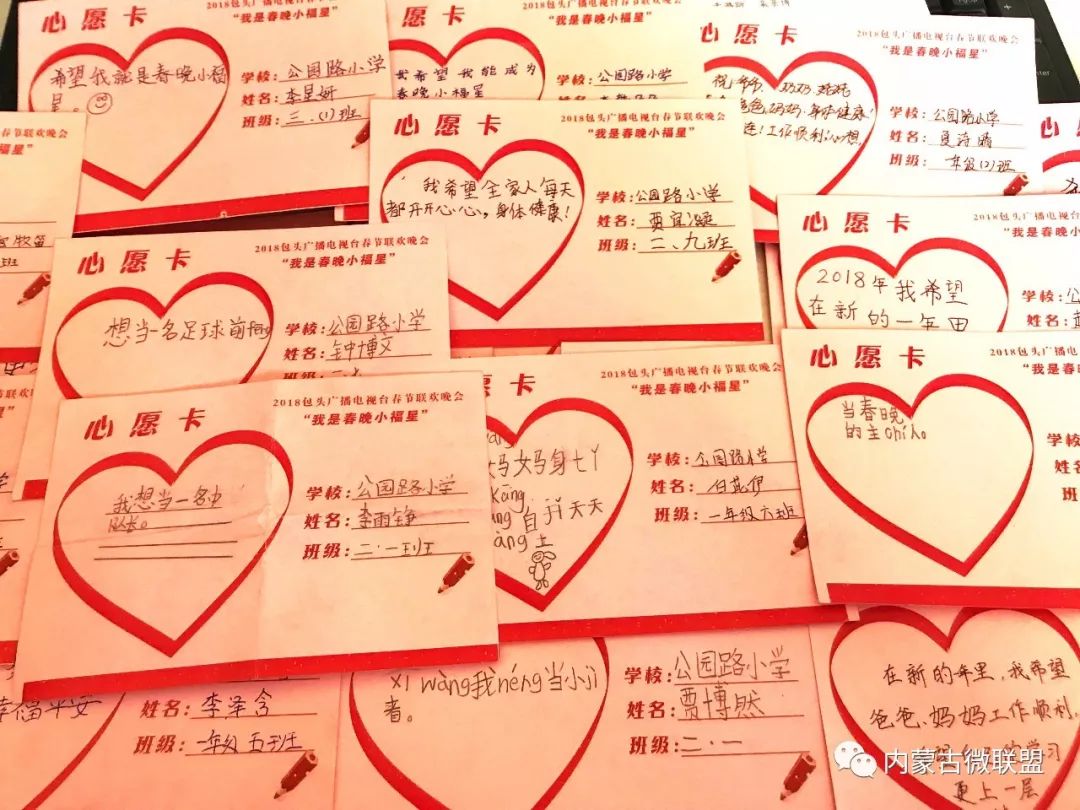 心愿卡
2018包头广播电视台春节联欢晚会
“我是春晚小福星”
希望我就是春晚小福
星。
学校：公园路小学
姓名：李星妍
班级：三.(1)班
心愿卡
2018包头广播电视台春节联欢晚会
“我是春晚小福星”
我希望我能成为
春晚小福星
学校：公园路小学
姓名：
心愿卡
2018包头广播电视台春节联欢晚会
“我是春晚小福星”
祝爷爷、奶奶、姥姥
爸爸、妈妈、身体健康！
工作顺利、心想
学校：公园路小学
姓名：夏诗晴
班级：一年级(2)班
春节联欢晚会
小福星”
班
心愿卡
2018包头广播电视台春节联欢晚会
“我是春晚小福星”
我希望全家人每天
都开开心心，身体健康！
学校：公园路小学
姓名：贾宜凝
班级：二、九班
心愿卡
2018包头广播电视台春节联欢晚会
“我是春晚小福星”
想当一名足球前feng
学校：公园路小学
姓名：钟博文
班级：
心愿卡
2018包头广播电视台春节联欢
“我是春晚小福星”
2018年我希望
在新的一年里
学校：公
姓名：
心愿卡
2018包头广播电视台春节联欢晚会
“我是春晚小福星”
我想当一名中
队长。
学校：公园路小学
姓名：李雨铮
班级：二·一班班
愿卡
2018包头广播电视台春节联欢晚会
“我是春晚小福星”
妈妈身tǐ
kāng
自行天天
àng上
学校：公园路小学
姓名：
班级：一年级六班
心愿卡
2018包头广播电视台春节联欢
“我是春晚小福
当春晚
的主chí人。
学
姓名
班级
幸福平安
姓名：李泽含
班级：一年级五班
xī wàng我néng当小jì
者。
学校：公园路小学
姓名：贾博然
班级：二·一
在新的年里，我希望
爸爸、妈妈工作顺利，
的学习
更上一层
内蒙古微联盟